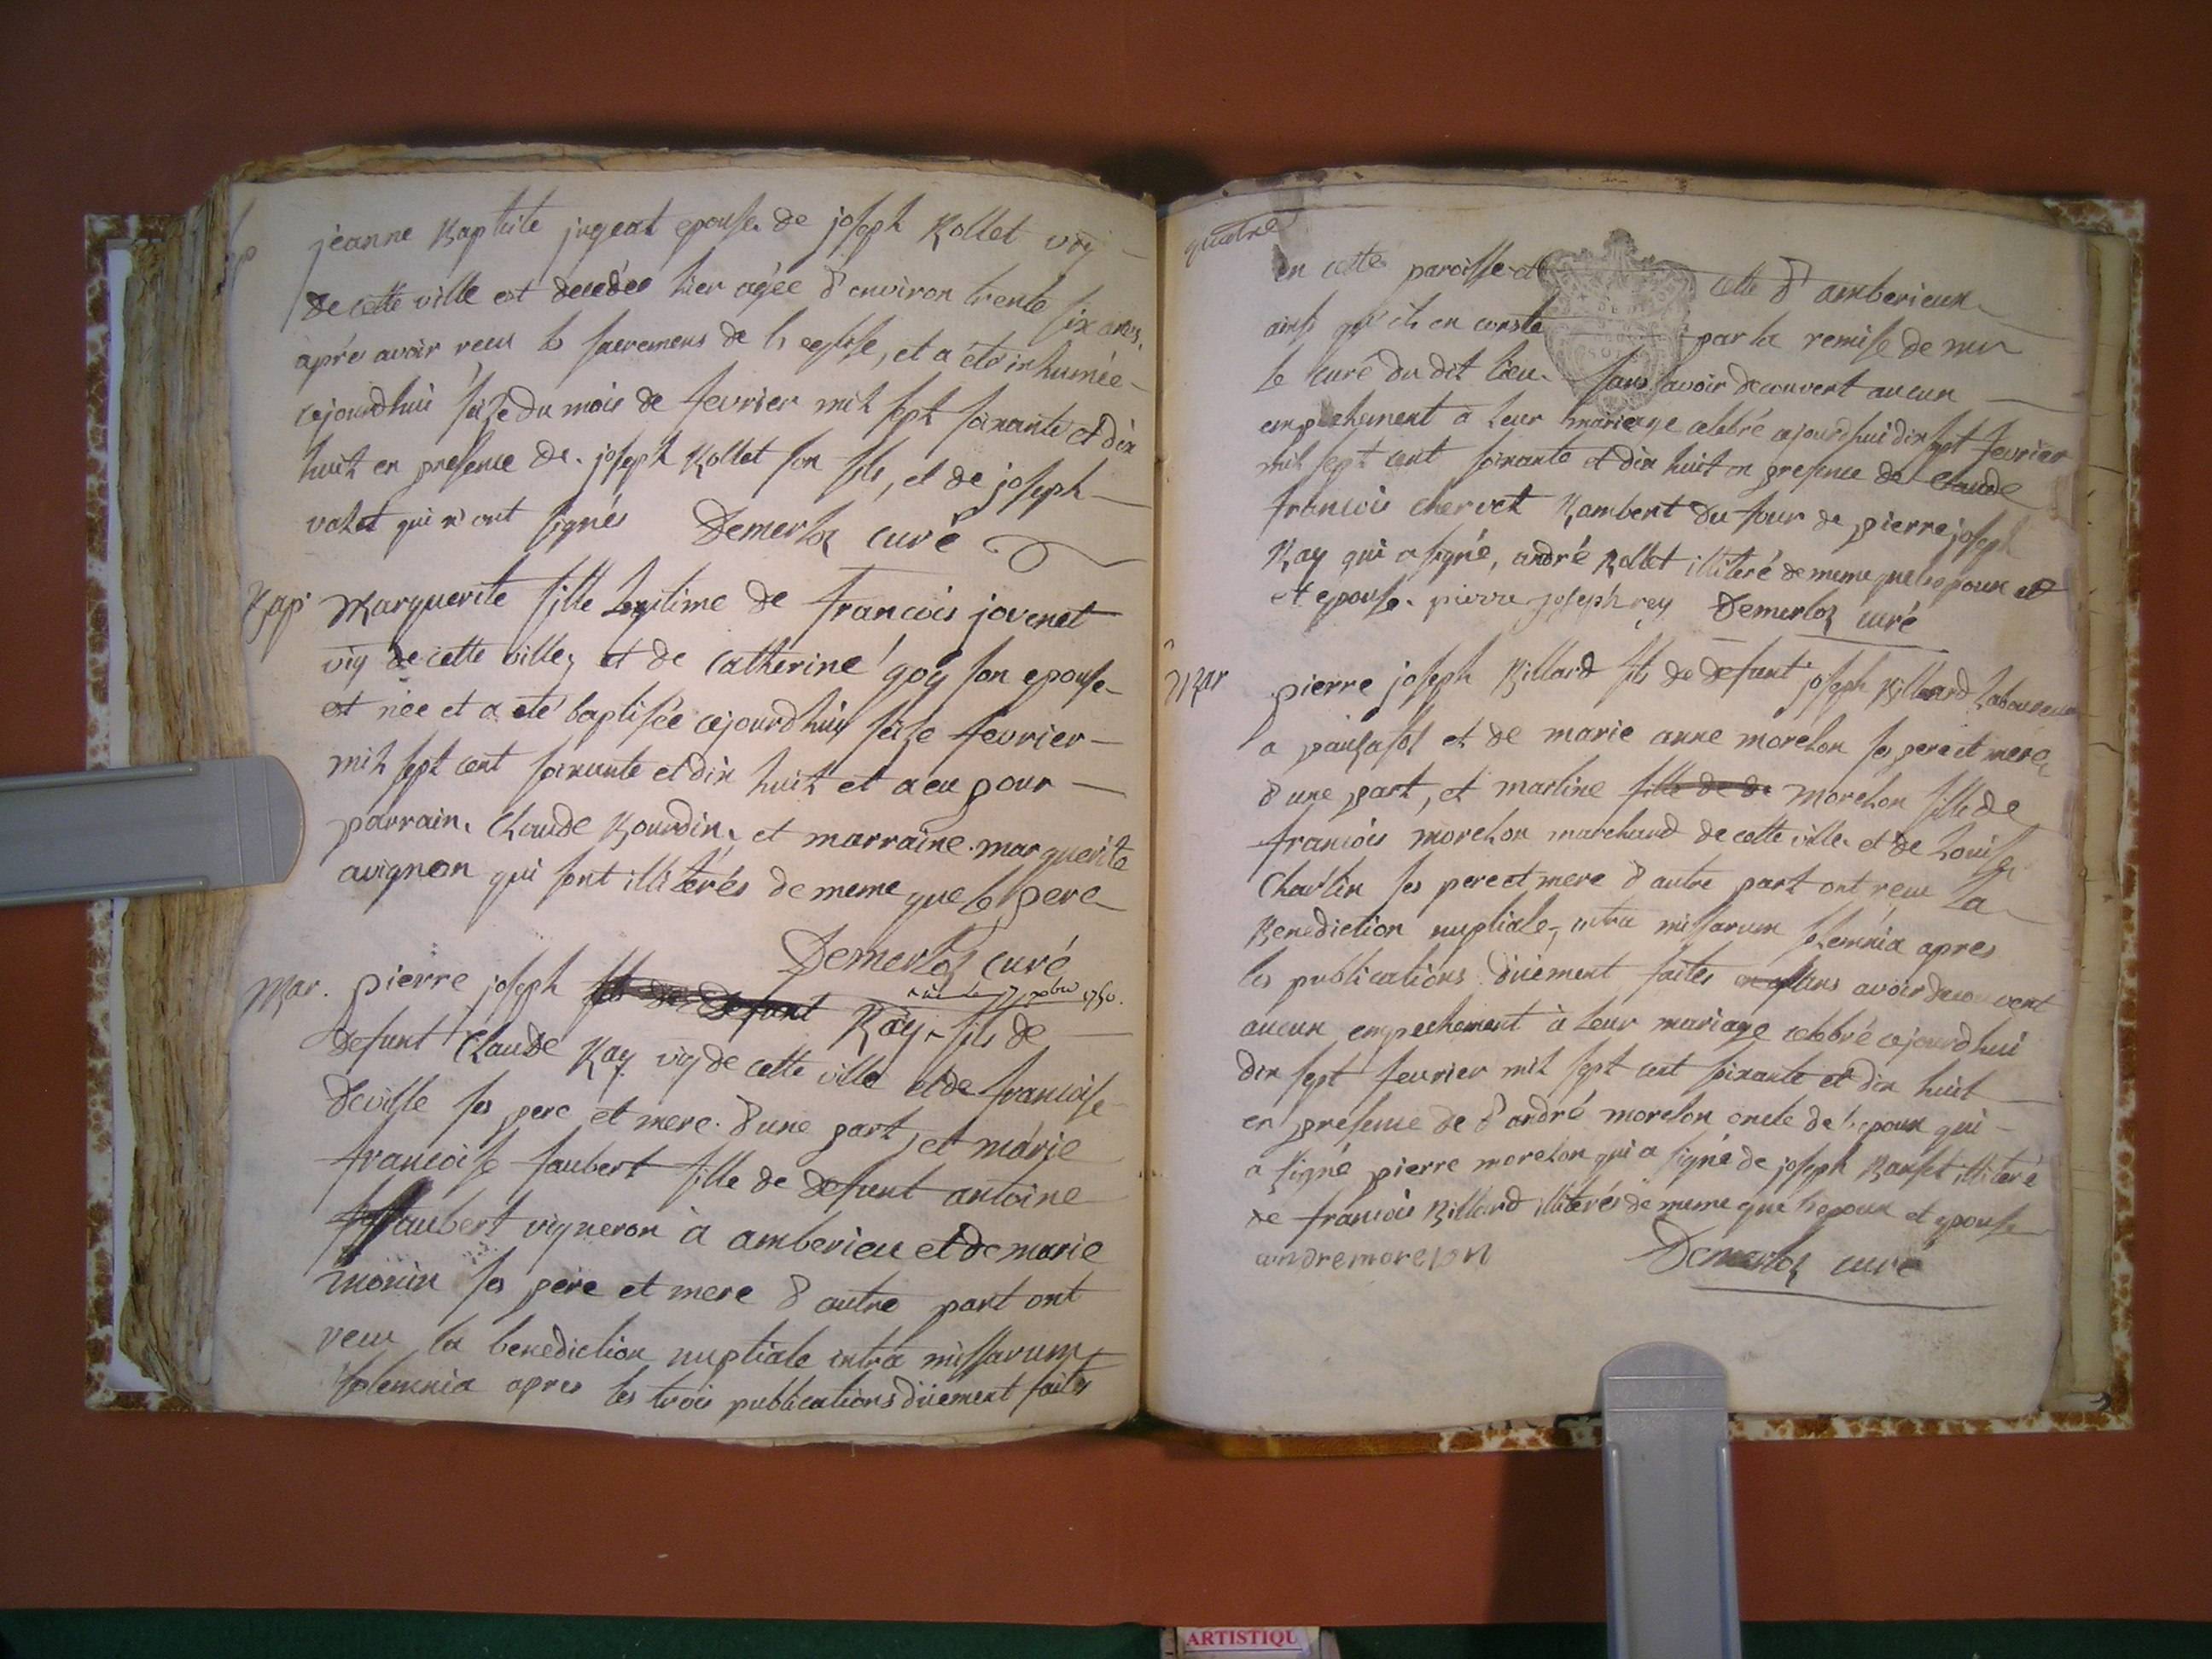 jeanne Baptiste jugeat epouse de joseph Rollet vig
de cette ville est decedée hier agée d'environ trente six ans,
aprés avoir recu les sacremens de l'eglise, et a été inhumée
cejourdhui seize du mois de fevrier mil sept soixante et dix
huit en presence de joseph Rollet son fils, et de joseph
valet qui n'ont signés Demerloz curé
Bap. Marguerite fille legitime de francois jovenet
vig de cette ville, et de catherine goy son epouse
est née et a eté baptisée cejourdhuy seize fevrier
mil sept cent soixante et dix huit et a eu pour
parrain Claude Bourdin et marraine marguerite
avignon qui sont illiterés de meme que le pere
Demerloz curé
Mar. pierre joseph fils de defunt Ray fils de
defunt Claude Ray vig de cette ville et de francoise
deville ses pere et mere d'une part, et marie
francoise faubert fille de defunt antoine
faubert vigneron à amberieu et de marie
monin ses pere et mere d'autre part ont
recu la benediction nuptiale intra missarum
solemnia apres les trois publications düement faites
quatre
en cette paroisse et celle d'amberieux
ainsi qu'il en conste par la remise de mr
le curé du dit lieu sans avoir decouvert aucun
empechement a leur mariage celebré cejourdhui dix sept fevrier
mil sept cent soixante et dix huit en presence de Claude
francois chervet Rambert dufour de pierre joseph
Ray qui a signé, andré Rollet illiteré de meme que les poux et
et epouse. pierre joseph rey Demerloz curé
Mar pierre joseph Billard fils de defunt joseph Billard laboureur
a et de marie anne morelon ses pere et mere
d'une part, et marline fille de de morelon fille de
francois morelon marchand de cette ville et de Louise
Charlin ses pere et mere d'autre part ont recu la
Benediction nuptiale, intra missarum solemnia apres
les publications düement faites sans avoir decouvert
aucun empechement à leur mariage celebré cejourdhui
dix sept fevrier mil sept cent soixante et dix huit
en presence de d'andré morelon oncle de l'epoux qui
a signé pierre morelon qui a signé de joseph illiteré
de francois Billard illiterés de meme que l'epoux et epouse
andremorelon Demerloz curé
ARTISTIQU